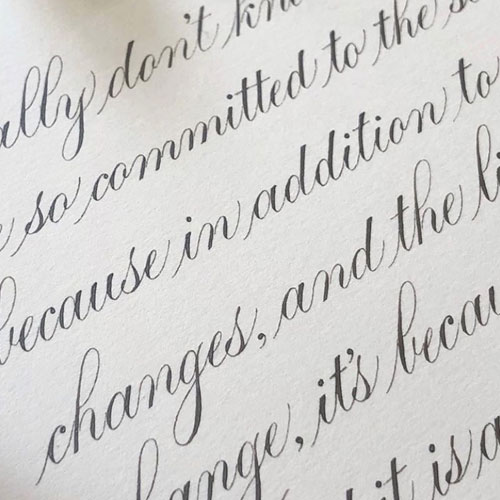 ally don't kn
so committed to the s
because in addition to
changes, and the li
hange, it's becau
it is a